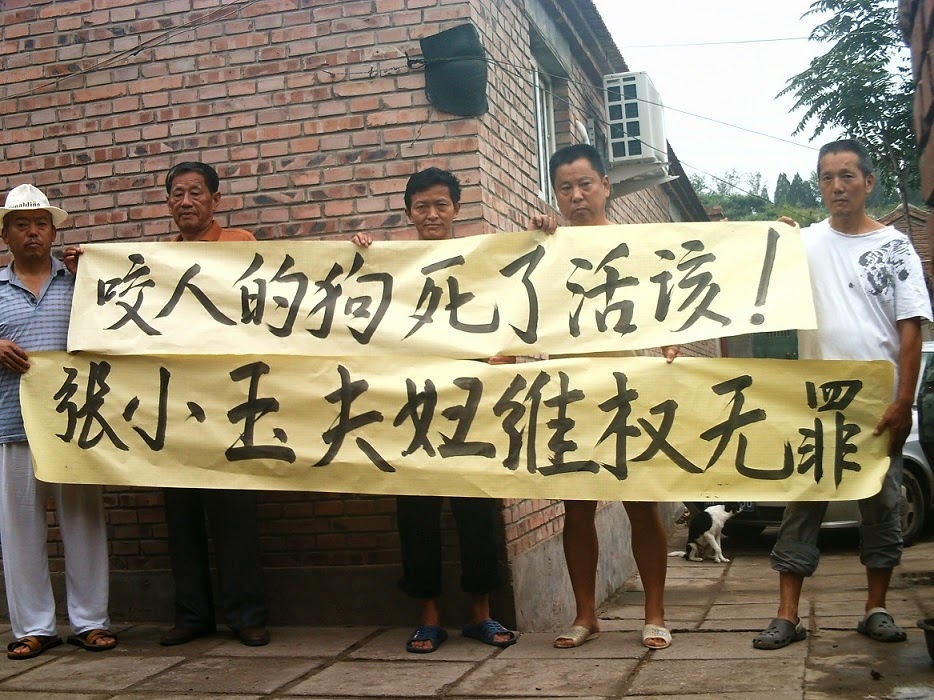 咬人的狗死了活该!
张小玉夫妇维权无罪